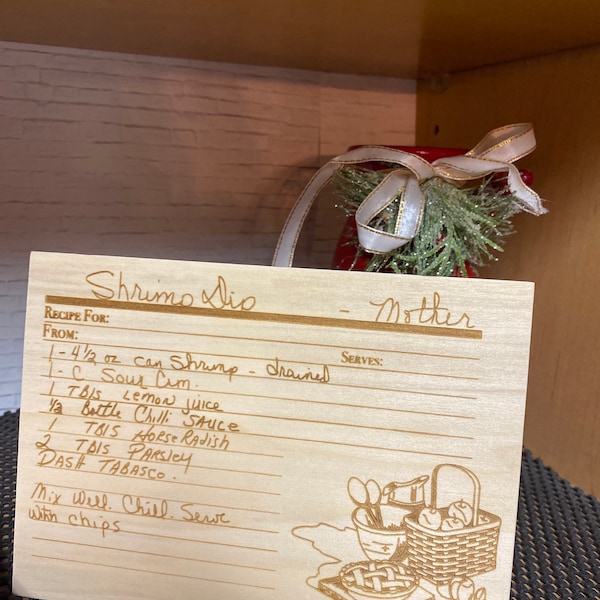 Shrimp Dip - Mother
RECIPE FOR:
FROM:
SERVES:
1 - 4 1/2 oz can Shrimp - drained
1 - C Sour Crm.
1 TBIS LEMON JUICE
1/2 Bottle Chilli SAUCE
1 TBIS HORSERADISH
2 TBIS PARSLEY
DASH TABASCO.
Mix Well. Chill. Serve
with chips